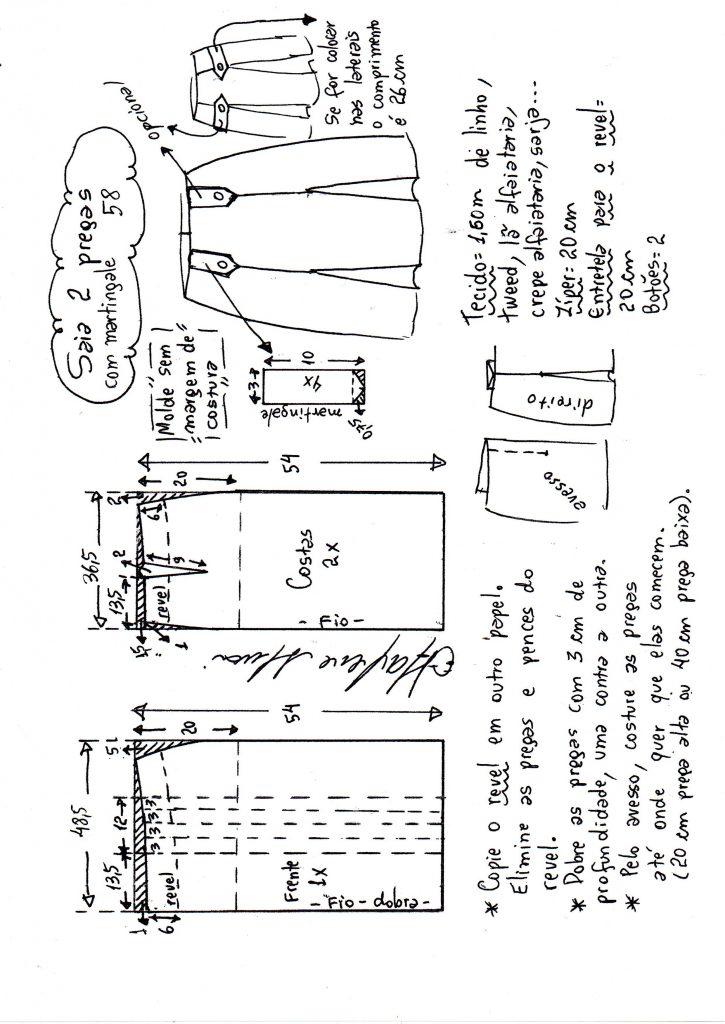 Saia 2 pregas
com martingale 58
opcional
Se for colocar
nas laterais
o comprimento
é 26cm
"Molde sem"
"margem de"
costura
3
10
4x
0,5
martingale
48,5
13,5
12
5
1
6
revel
3 3 3 3
20
54
Frente
1x
- Fio - dobra -
36,5
13,5
2
2
1,5
1
6
revel
9
20
54
Costas
2x
- Fio -
avesso
direito
Tecido = 1,50m de linho,
tweed, lã alfaiataria,
crepe alfaiataria, sarja...
Zíper = 20 cm
Entretela para o revel =
20 cm
Botões = 2
* Copie o revel em outro papel.
Elimine as pregas e pences do
revel.
* Dobre as pregas com 3 cm de
profundidade, uma contra a outra.
* Pelo avesso, costure as pregas
até onde quer que elas comecem.
(20 cm prega alta ou 40 cm prega baixa).